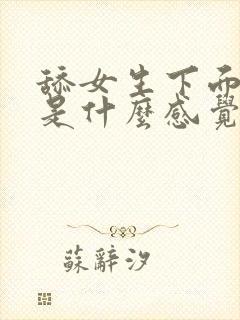 舔女生下面
是什麼感覺
蘇辭汐